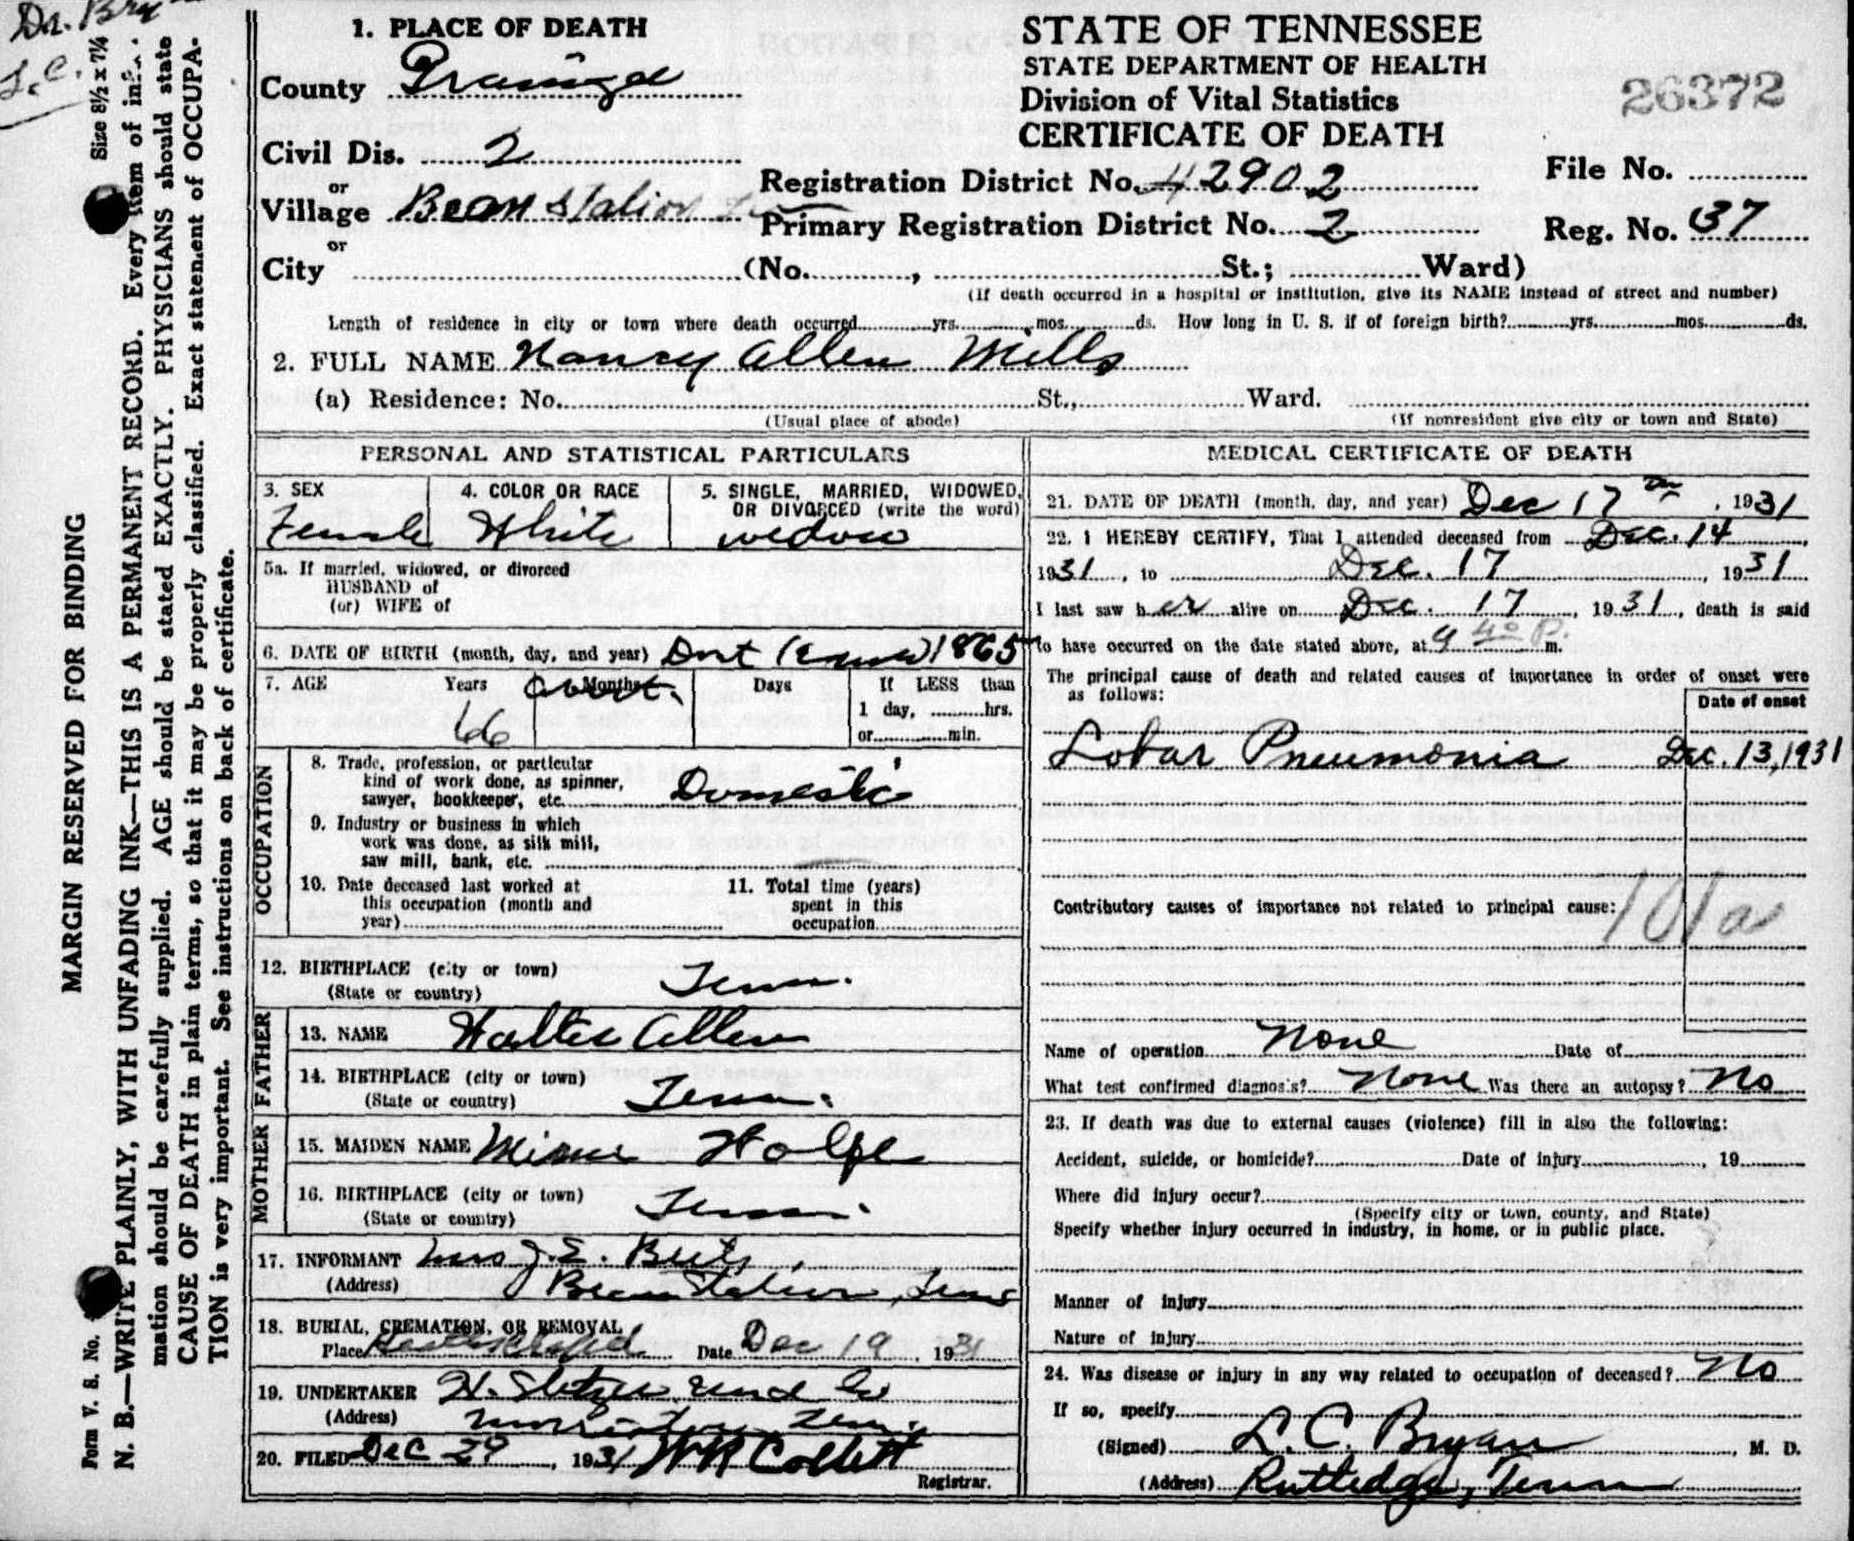 Dr. Bry
L.C.
Size 8½ x 7¼
MARGIN RESERVED FOR BINDING
Form V. S. No.
N. B.—WRITE PLAINLY, WITH UNFADING INK—THIS IS A PERMANENT RECORD. Every item of infor-
mation should be carefully supplied. AGE should be stated EXACTLY. PHYSICIANS should state
CAUSE OF DEATH in plain terms, so that it may be properly classified. Exact statement of OCCUPA-
TION is very important. See instructions on back of certificate.
1. PLACE OF DEATH
County Grainger
Civil Dis. 2
or
Village Bean Station
or
City (No. , St.; Ward)
STATE OF TENNESSEE
STATE DEPARTMENT OF HEALTH
Division of Vital Statistics
CERTIFICATE OF DEATH
26372
Registration District No. 42902
File No.
Primary Registration District No. 2
Reg. No. 37
(If death occurred in a hospital or institution, give its NAME instead of street and number)
Length of residence in city or town where death occurred yrs. mos. ds. How long in U. S. if of foreign birth? yrs. mos. ds.
2. FULL NAME Nancy Allen Mills
(a) Residence: No. St., Ward.
(Usual place of abode) (If nonresident give city or town and State)
PERSONAL AND STATISTICAL PARTICULARS
3. SEX Female
4. COLOR OR RACE White
5. SINGLE, MARRIED, WIDOWED, OR DIVORCED (write the word) widow
5a. If married, widowed, or divorced
HUSBAND of
(or) WIFE of
6. DATE OF BIRTH (month, day, and year) Dont (know) 1865
7. AGE Years Months Days If LESS than
66 about. 1 day, hrs.
or min.
OCCUPATION
8. Trade, profession, or particular
kind of work done, as spinner,
sawyer, bookkeeper, etc. Domestic
9. Industry or business in which
work was done, as silk mill,
saw mill, bank, etc.
10. Date deceased last worked at
this occupation (month and
year)
11. Total time (years)
spent in this
occupation
12. BIRTHPLACE (city or town) Tenn.
(State or country)
FATHER
13. NAME Walter Allen
14. BIRTHPLACE (city or town)
(State or country) Tenn.
MOTHER
15. MAIDEN NAME Wolfe
16. BIRTHPLACE (city or town)
(State or country) Tenn.
17. INFORMANT Mrs J. E.
(Address) Bean Station, Tenn
18. BURIAL, CREMATION, OR REMOVAL
Place Date Dec 19, 1931
19. UNDERTAKER H.
(Address) Morristown Tenn.
20. FILED Dec 29, 1931 WR Collett
Registrar.
MEDICAL CERTIFICATE OF DEATH
21. DATE OF DEATH (month, day, and year) Dec 17 th, 1931
22. I HEREBY CERTIFY, That I attended deceased from Dec. 14,
1931, to Dec. 17, 1931
I last saw her alive on Dec. 17, 1931, death is said
to have occurred on the date stated above, at 9 40 P. m.
The principal cause of death and related causes of importance in order of onset were
as follows:
Date of onset
Lobar Pneumonia Dec. 13, 1931
Contributory causes of importance not related to principal cause:
101a
Name of operation None Date of
What test confirmed diagnosis? None Was there an autopsy? No
23. If death was due to external causes (violence) fill in also the following:
Accident, suicide, or homicide? Date of injury , 19
Where did injury occur?
(Specify city or town, county, and State)
Specify whether injury occurred in industry, in home, or in public place.
Manner of injury
Nature of injury
24. Was disease or injury in any way related to occupation of deceased? No
If so, specify
(Signed) L. C. Bryan, M. D.
(Address) Rutledge, Tenn